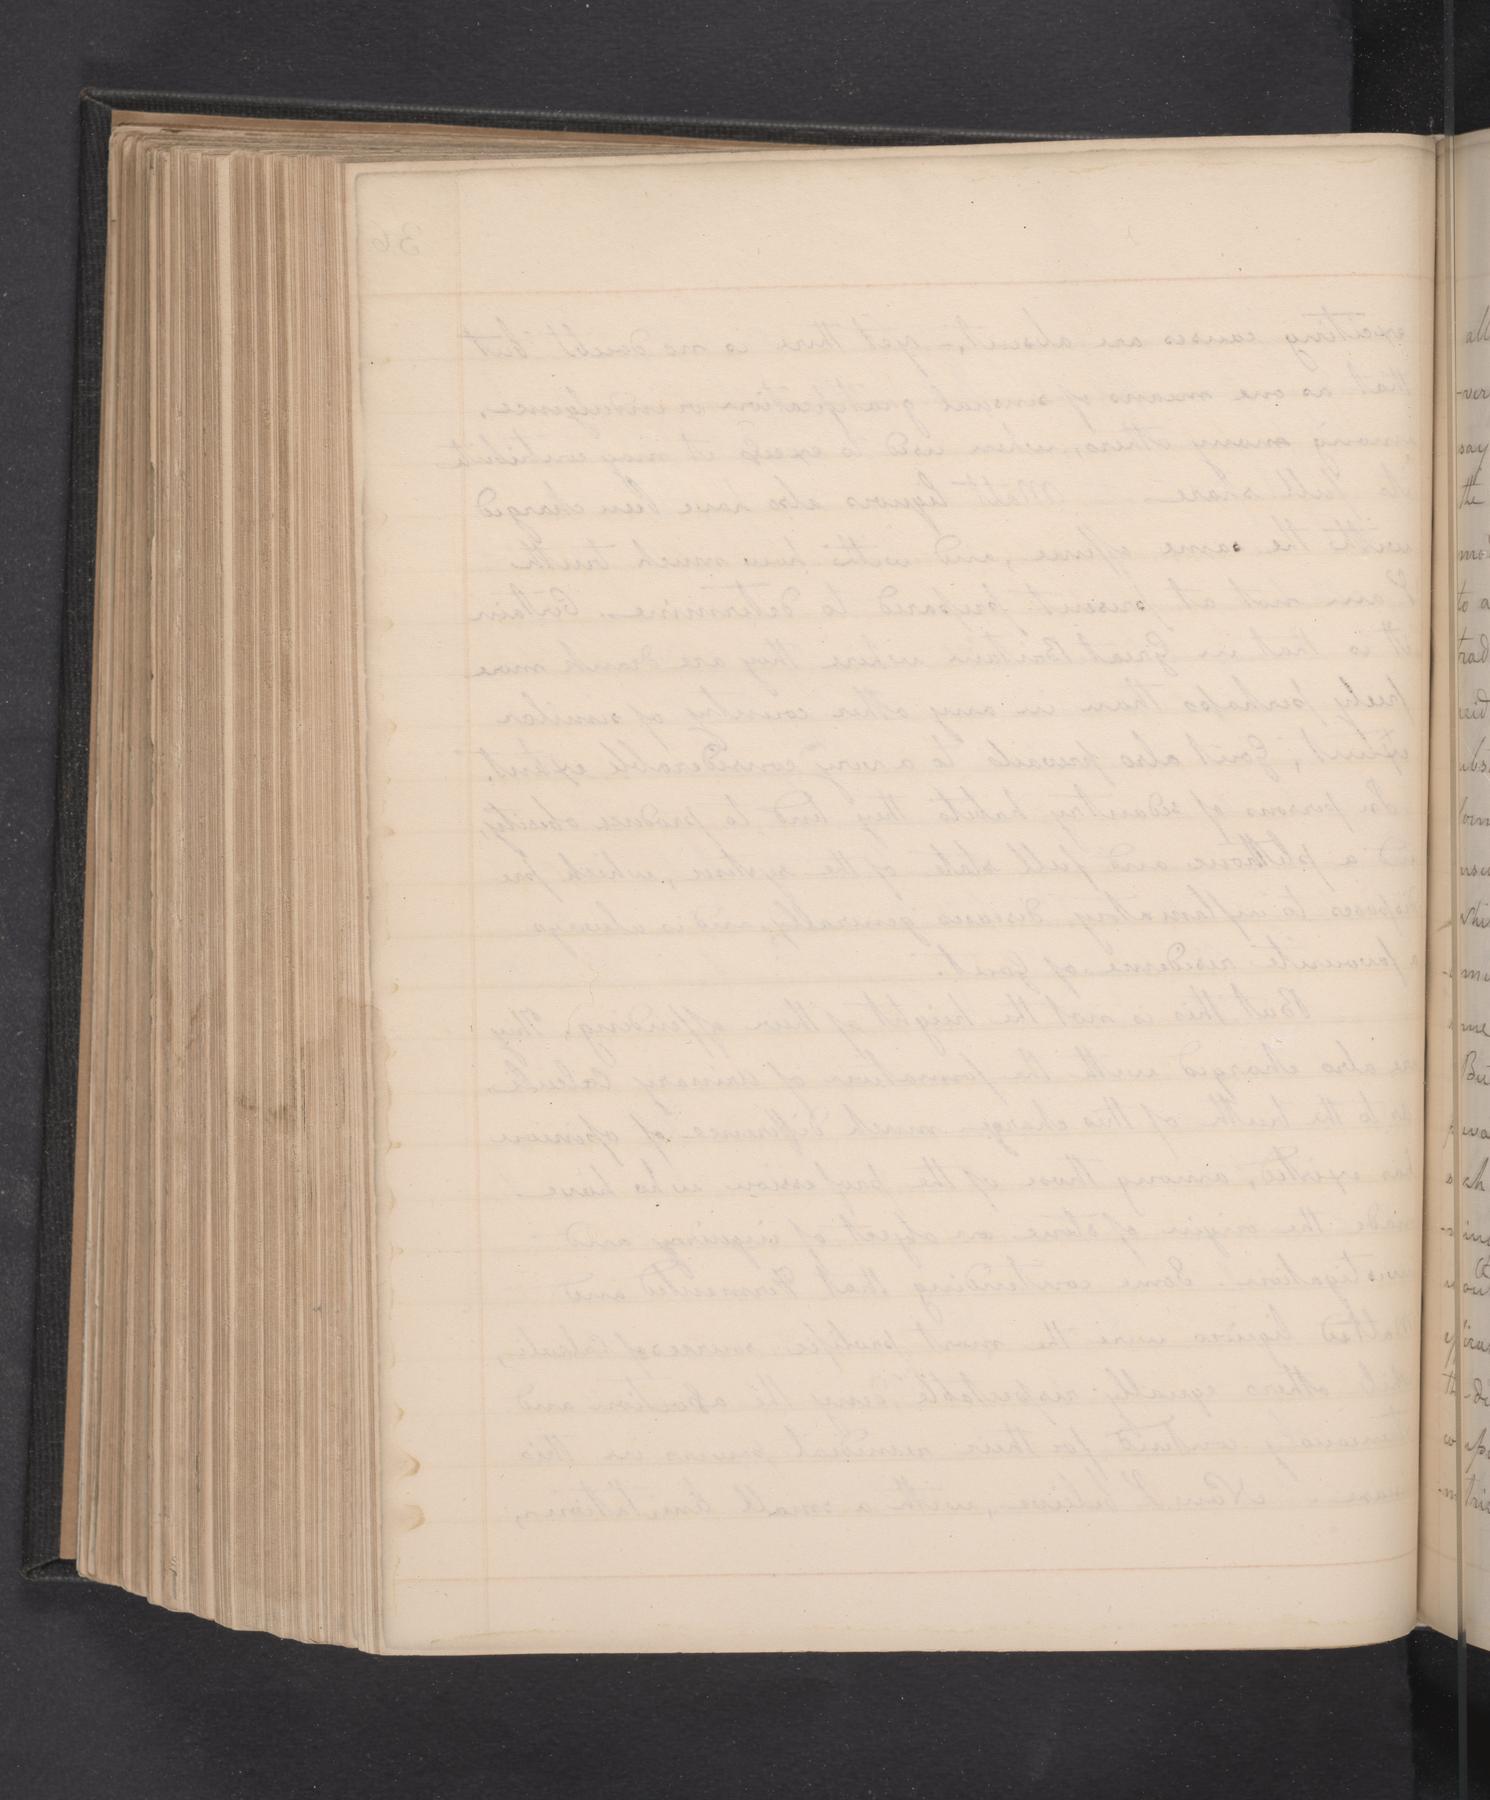 36
exciting causes are absent, - yet there is no doubt but
that as one means of sensual gratification or indulgence,
among many others, when used to excess it may contribute
its full share. - Malt liquors also have been charged
with the same offence, and with how much truth
I am not at present prepared to determine. Certain
it is that in Great Britain where they are drank more
freely perhaps than in any other country of similar
extent, Gout also prevails to a very considerable extent.
In persons of sedantry habits they tend to produce obesity,
and a plethoric and full state of the system, which pre
disposes to inflamatory diseases generally, and is always
a favourite residence of Gout.
But this is not the height of their offending. They
are also charged with the formation of Urinary Calculi.
As to the truth of this charge much difference of opinion
has existed, among those of the profession who have
made the origin of stone an object of inquiry and
investigation. Some contending that Fermented and
Malted liquors were the most prolific sources of Calculi,
while others equally respectable deny the assertion and
contend for their remedial powers in this
Now I believe, with a small limitation,
all
say
the
to a
But